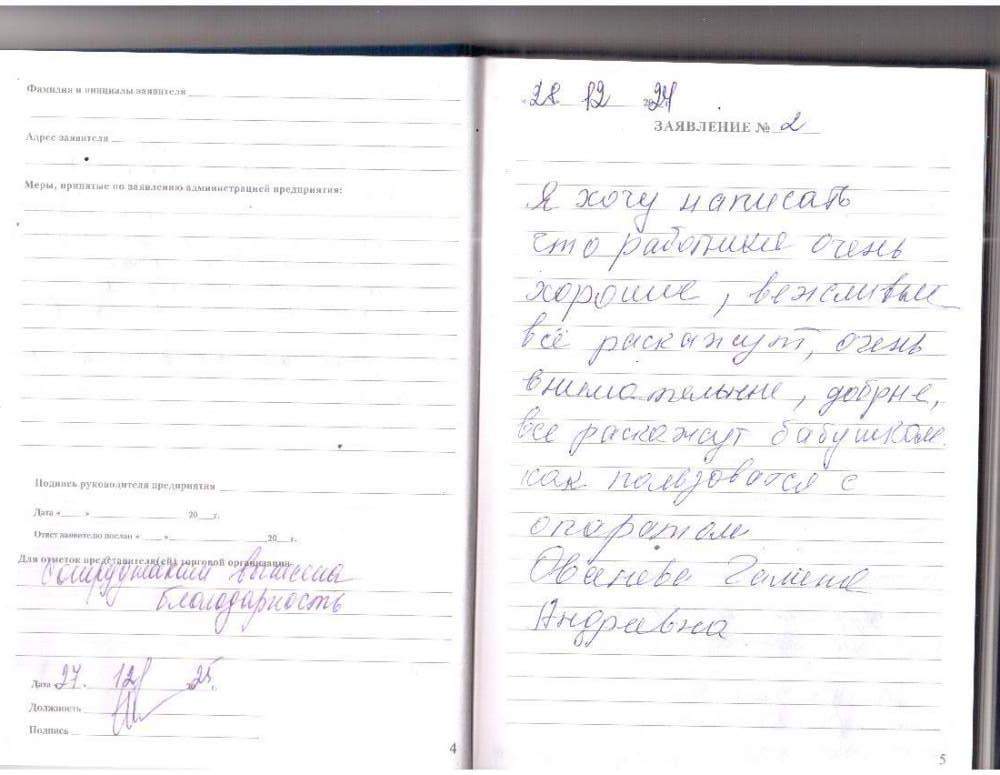 Фамилия и инициалы заявителя
Адрес заявителя
Меры, принятые по заявлению администрацией предприятия:
Подпись руководителя предприятия
Дата « » 20 г.
Ответ заявителю послан « » 20 г.
Для отметок представителя(ей) торговой организации
Сотрудникам вынесена
благодарность
Дата 27. 12 2025 г.
Должность
Подпись
4
28 12 2024
ЗАЯВЛЕНИЕ № 2
Я хочу написать
что работники очень
хорошие, вежливые
всё раскажут, очень
внимательные, добрые,
все раскажут бабушкам
как ползоватся с
опаратом
Галина
Андравна
5